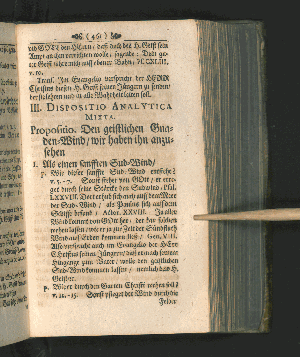 ( 46 )
und GOtt den HErrn, daß doch der H. Geist sein
Amt an ihr verrichten wolle, sagende: Dein gu-
ter Geist führe mich auf ebener Bahn, Ps. CXLIII.
v. 10.
Trans. Im Evangelio verspricht der HERR
Christus diesen H. Geist seinen Jüngern zu senden/
der sie lehren und in alle Wahrheit leiten soll.
III. DISPOSITIO ANALYTICA
MIXTA.
Propositio. Den geistlichen Gna-
den-Wind/ wir haben ihn anzu-
sehen
1. Als einen sanfften Sud-Wind/
v. 5.-7. Sonst stehet von GOtt/ er erre-
get durch seine Stärcke den Sudwind/ Psal.
LXXVIII.
der Sud-Wind/ als Paulus sich auf dem
Schiffe befand/ Actor. XXVIII. Ja alles
Wind kommt von GOtt her/ der hat
wehen lassen/ wie er zu der Zeit der Sündfluth
Wind auf Erden kommen ließ/ Gen. VIII.
Also verspricht auch im Evangelio der HErr
Christus seinen Jüngern/ daß er nach seinem
Hingange zum Vater/ wolle den geistlichen
Sud-Wind kommen lassen/ nemlich den H.
Geist
p. Welcher durch den Garten Christi wehen soll/
v. 12.-15. Sonst pfleget der Wind durch die
Felder